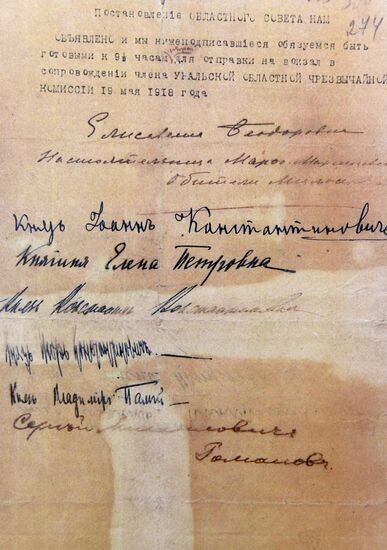 274
Постановление ОБЛАСТНОГО СОВЕТА НАМ
ОБЪЯВЛЕНО и мы нижеподписавшиеся обязуемся быть
готовыми к 9½ часам для отправки на вокзал в
сопровождении члена УРАЛЬСКОЙ ОБЛАСТНОЙ ЧРЕЗВЫЧАЙНОЙ
КОМИССИИ 19 мая 1918 года
Елисавета Феодоровна
Настоятельница Марфо Мариинской
Обители
Князь Іоаннъ Константиновичъ
Княгиня Елена Петровна
Князь Константин Константинович
Князь Игорь Константиновичъ
Князь Владиміръ Палей
Сергѣй Михаиловичъ
Романовъ.